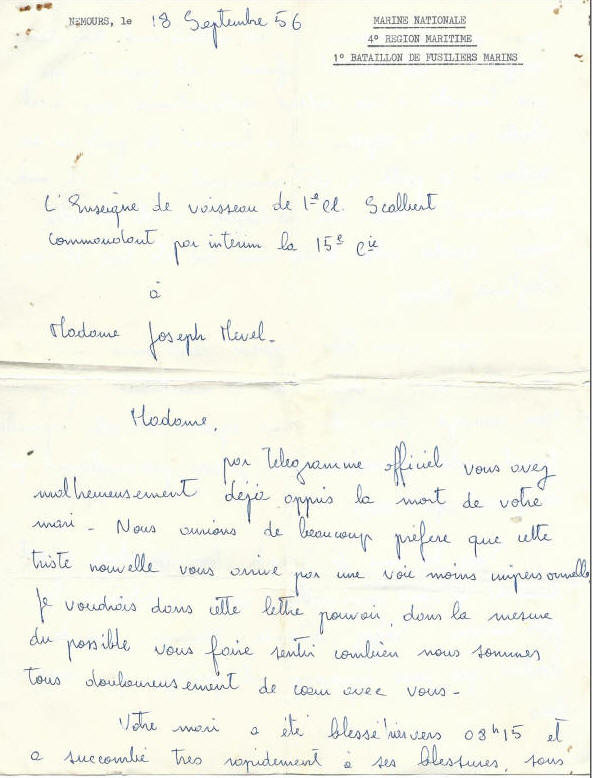 NEMOURS, le 18 Septembre 56
MARINE NATIONALE
4° REGION MARITIME
1° BATAILLON DE FUSILIERS MARINS
L'Enseigne de vaisseau de 1re Cl. Scalbert
commandant par intérim la 15e Cie
à
Madame Joseph Mevel-
Madame,
par Telegramme officiel vous avez
malheureusement déjà appris la mort de votre
mari - Nous aurions de beaucoup préféré que cette
triste nouvelle vous arrive par une voie moins impersonnelle
Je voudrais dans cette lettre pouvoir, dans la mesure
du possible vous faire sentir combien nous sommes
tous douloureusement de cœur avec vous -
Votre mari a été blessé hier vers 08h15 et
a succombé très rapidement à ses blessures, sans